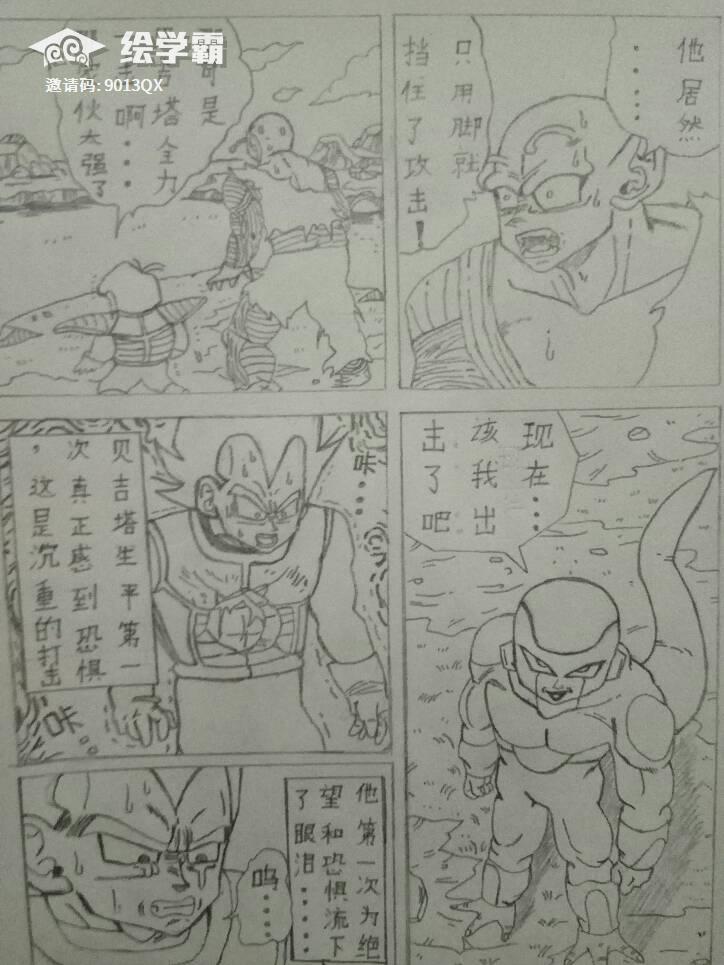 绘学霸
邀请码: 9013QX
他居然
……
只用脚就
挡住了攻击！
可是
塔全力
啊……
伙太强了
现在…
该我出
击了吧
咔……
贝吉塔生平第一
次真正感到恐惧
，这是沉重的打击
咔…
他第一次为绝
望和恐惧流下
了眼泪……
呜……